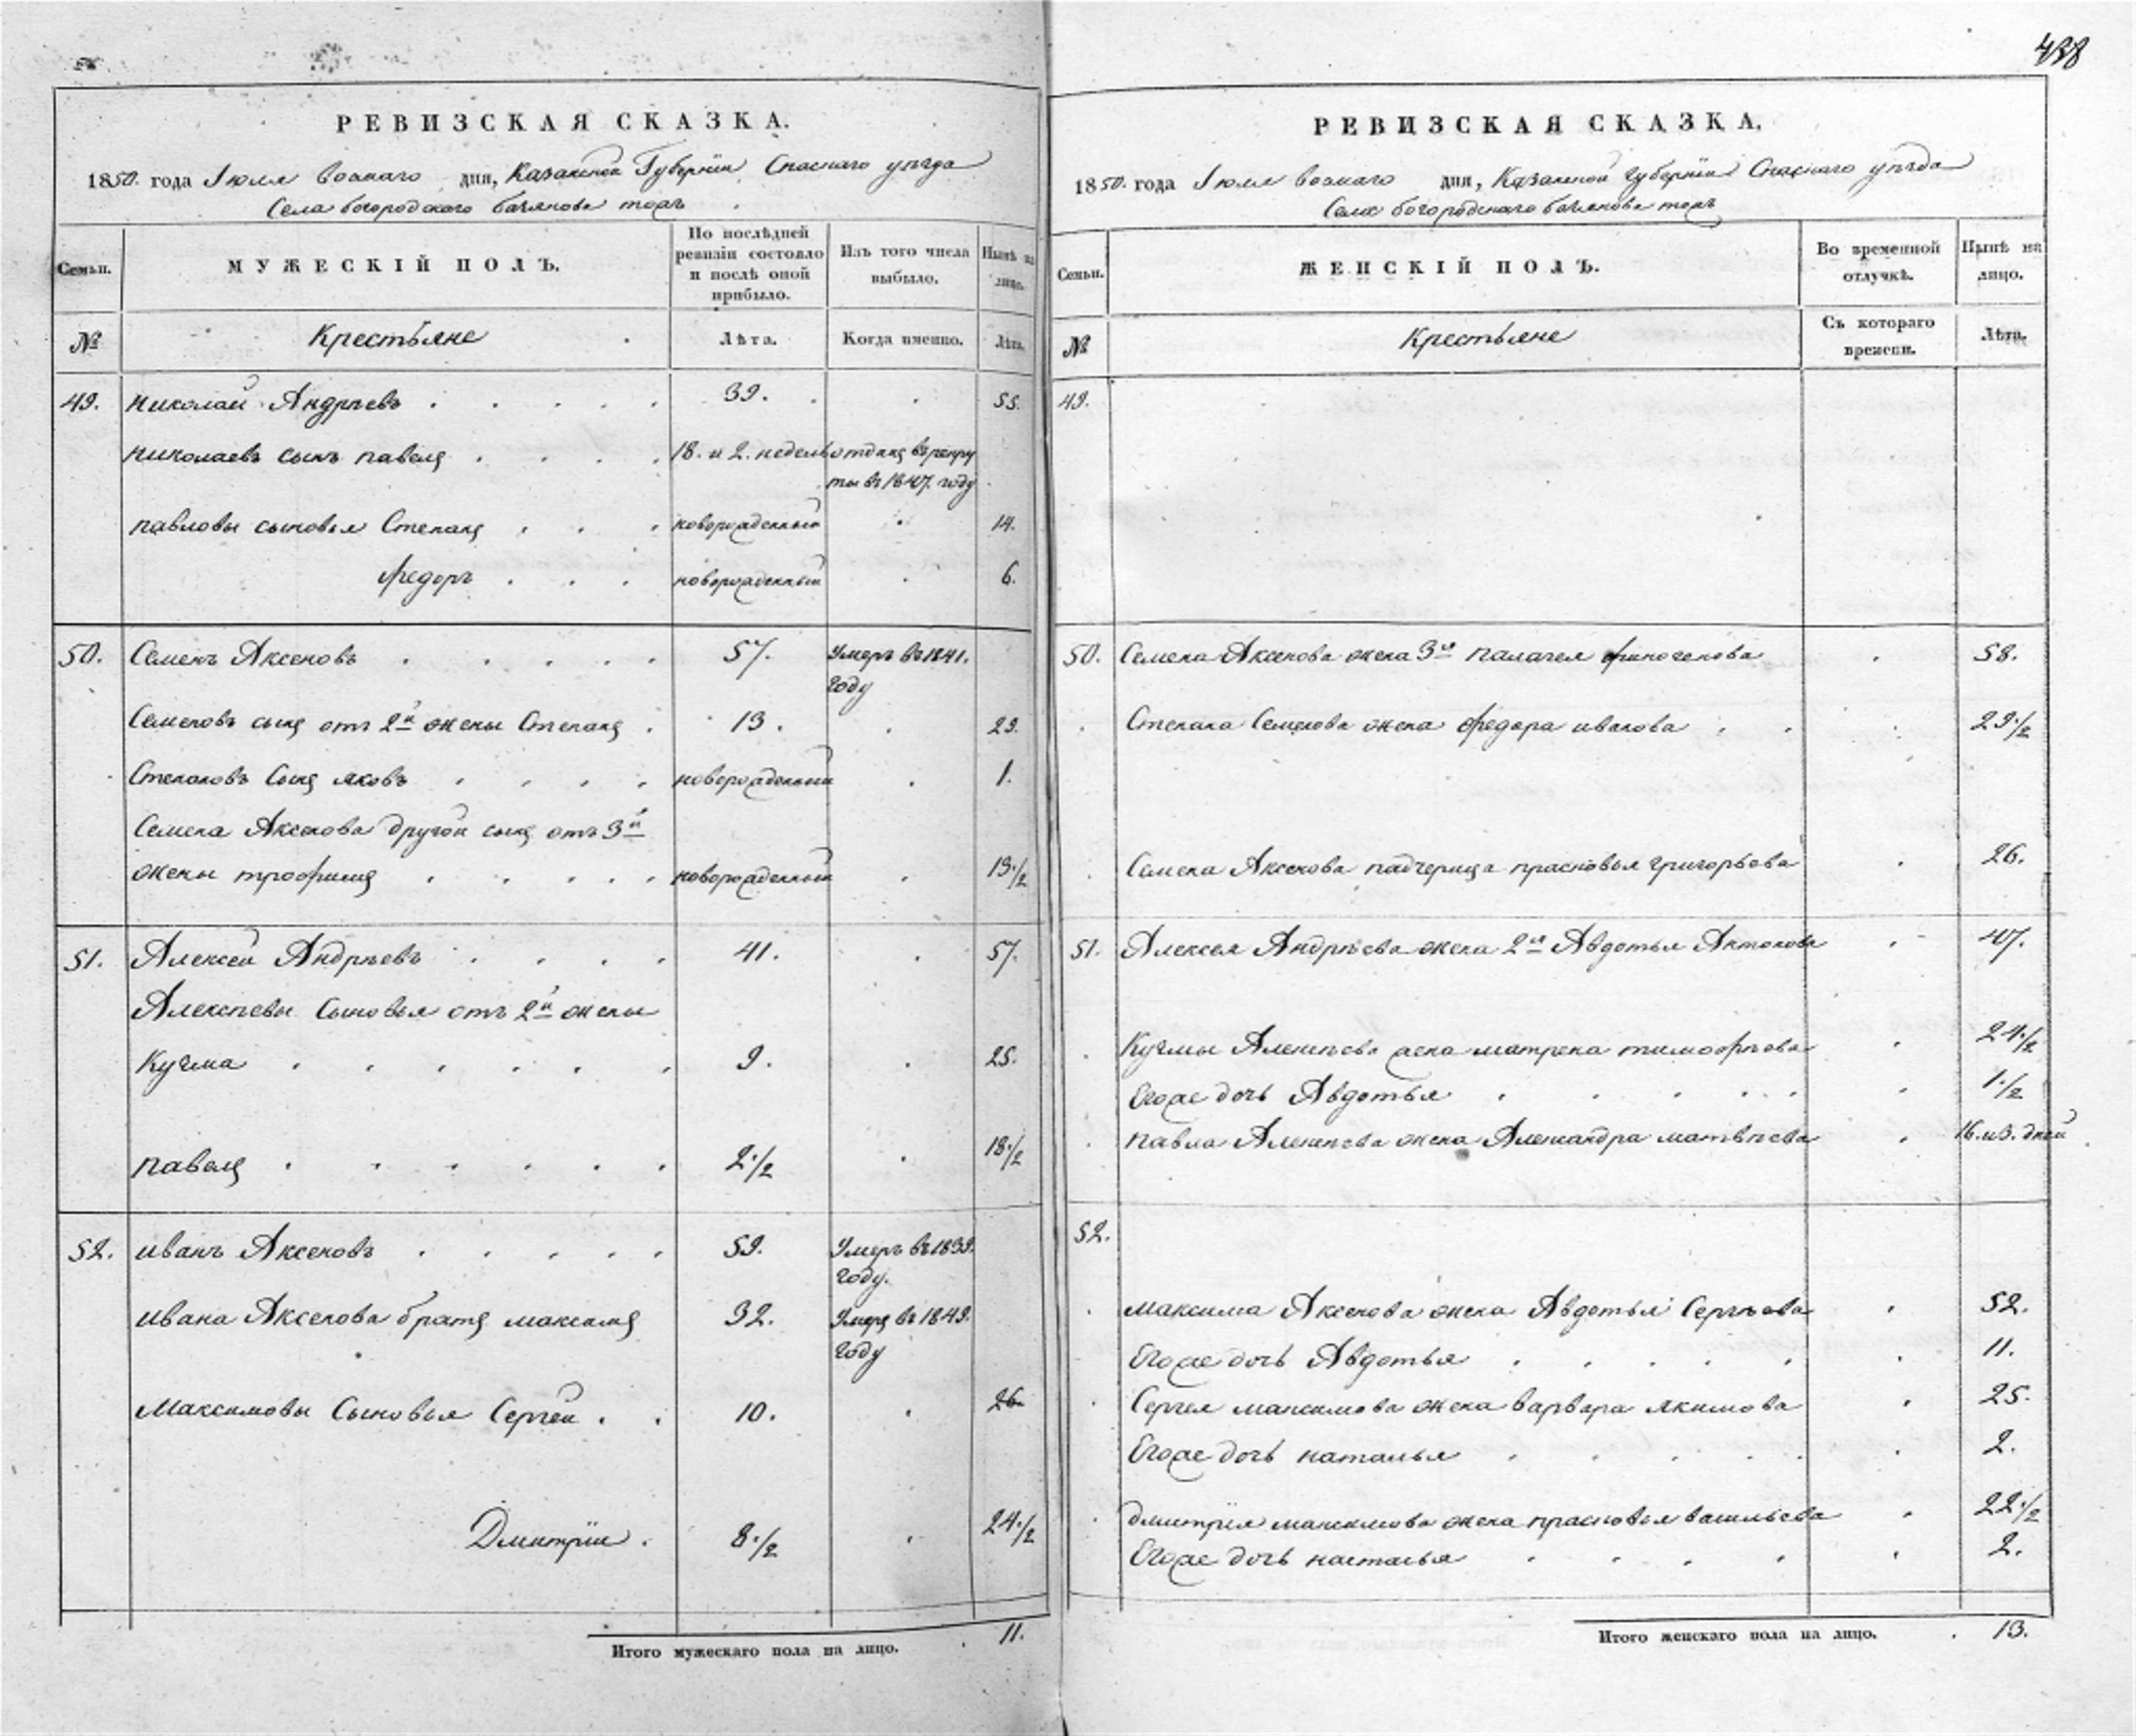 438
РЕВИЗСКАЯ СКАЗКА.
1850. года Июля дня, Казанской Губернии Спаскаго уезда
Села богородскаго тожъ
Семьи.
МУЖЕСКІЙ ПОЛЪ.
По послѣдней ревизіи состояло и послѣ оной прибыло.
Изъ того числа выбыло.
Нынѣ на лицо.
№
Крестьяне
Лѣта.
Когда именно.
Лѣта.
49. николай Андреевъ 39. 55.
николаевъ сынъ павелъ 18. и 2. недель отданъ въ рекру
ты въ 1847. году
павловы сыновья Степанъ новорожденный 14.
федоръ новорожденный 6.
50. Семенъ Аксеновъ 57. Умеръ въ 1841.
году
Семеновъ сынъ отъ 2й жены Степанъ 13. 29.
Степановъ Сынъ яковъ новорожденный 1.
Семена Аксенова другой сынъ отъ 3й
жены трофимъ новорожденный 13 1/2
51. Алексей Андреевъ 41. 57.
Алексеевы Сыновья отъ 2й жены
Кузма 9. 25.
павелъ 2 1/2 18 1/2
52. иванъ Аксеновъ 59. Умеръ въ 1839.
году.
ивана Аксенова братъ максимъ 32. Умеръ въ 1849.
году
Максимовы Сыновья Сергей 10. 26
Дмитрій 8 1/2 24 1/2
Итого мужескаго пола на лицо. 11.
РЕВИЗСКАЯ СКАЗКА.
1850. года Июля дня, Казанской губернии Спаскаго уезда
Села богородскаго тожъ
Семьи.
ЖЕНСКІЙ ПОЛЪ.
Во временной отлучкѣ.
Нынѣ на лицо.
№
Крестьяне
Съ котораго времени.
Лѣта.
49.
50. Семена Аксенова жена 3я палагея финогенова 58.
Степана Семенова жена федора иванова 29 1/2
Семена Аксенова падчерица прасковья григорьева 26.
51. Алексея Андреева жена 2я Авдотья Антонова 47.
Кузмы Алексеева жена матрена тимофеева 24 1/2
Егоже дочь Авдотья 1 1/2
павла Алексеева жена Александра матвеева 16. и 3. дней
52.
максима Аксенова жена Авдотья Сергеева 52.
Егоже дочь Авдотья 11.
Сергея максимова жена варвара якимова 25.
Егоже дочь наталья 2.
дмитрия максимова жена прасковья васильева 22 1/2
Егоже дочь настасья 2.
Итого женскаго пола на лицо. 13.